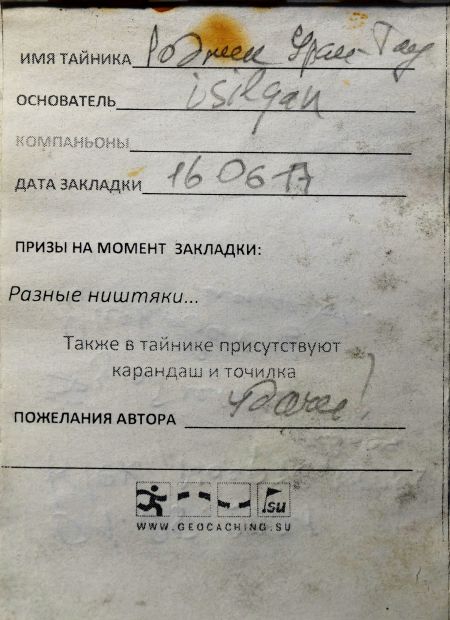 ИМЯ ТАЙНИКА Родник Урал-Тау
ОСНОВАТЕЛЬ isilgan
КОМПАНЬОНЫ
ДАТА ЗАКЛАДКИ 16 06 17
ПРИЗЫ НА МОМЕНТ ЗАКЛАДКИ:
Разные ништяки...
Также в тайнике присутствуют
карандаш и точилка
ПОЖЕЛАНИЯ АВТОРА Удачи!
.su
WWW.GEOCACHING.SU